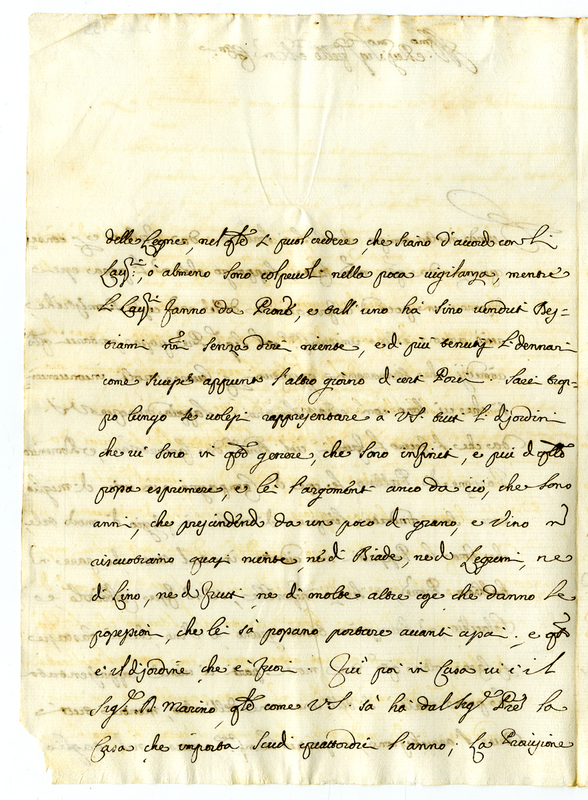 delle Legne, nel q.le si puol credere, che siano d'accordo con li
Lau.ri, ò almeno sono colpevoli nella poca vigilanza, mentre
li Lau.ri fanno da Proni, e dall'uno ha sino venduti Bes=
tiami n.ri senza dire niente, e di più tenutj li dennari
come successe appunto l'altro giorno di certi Porci. Sarei trop=
po lungo se volessi rappresentare à VS. tutti li disordini
che vi sono in q.sto genere, che sono infiniti, e più di q.llo
possa esprimere, e lei l'argomenti anco da ciò, che sono
anni, che prescindendo da un poco di grano, e Vino n
riscuotiamo quasi niente, nè di Biade, ne di Legumi, ne
di Lino, ne di frutti, ne di molte altre cose che danno le
possessioni, che lei sà possano portare avanti assai; e q.sto
è il disordine che è fuori. Qui poi in Casa vi è il
Sig.r D. Marino, q.le come VS. sà ha dal Sig.r Pre la
Casa che importa Scudi quattordici l'anno; La Provisione